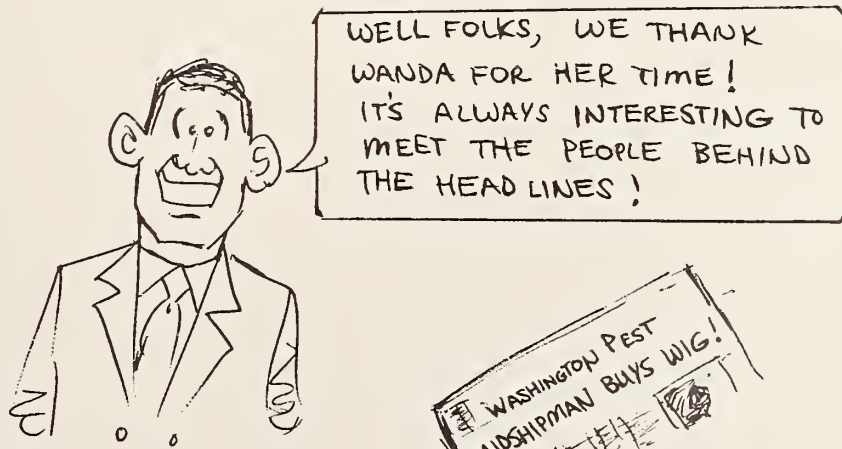 WELL FOLKS, WE THANK
WANDA FOR HER TIME!
IT'S ALWAYS INTERESTING TO
MEET THE PEOPLE BEHIND
THE HEADLINES!
WASHINGTON PEST
MIDSHIPMAN BUYS WIG!